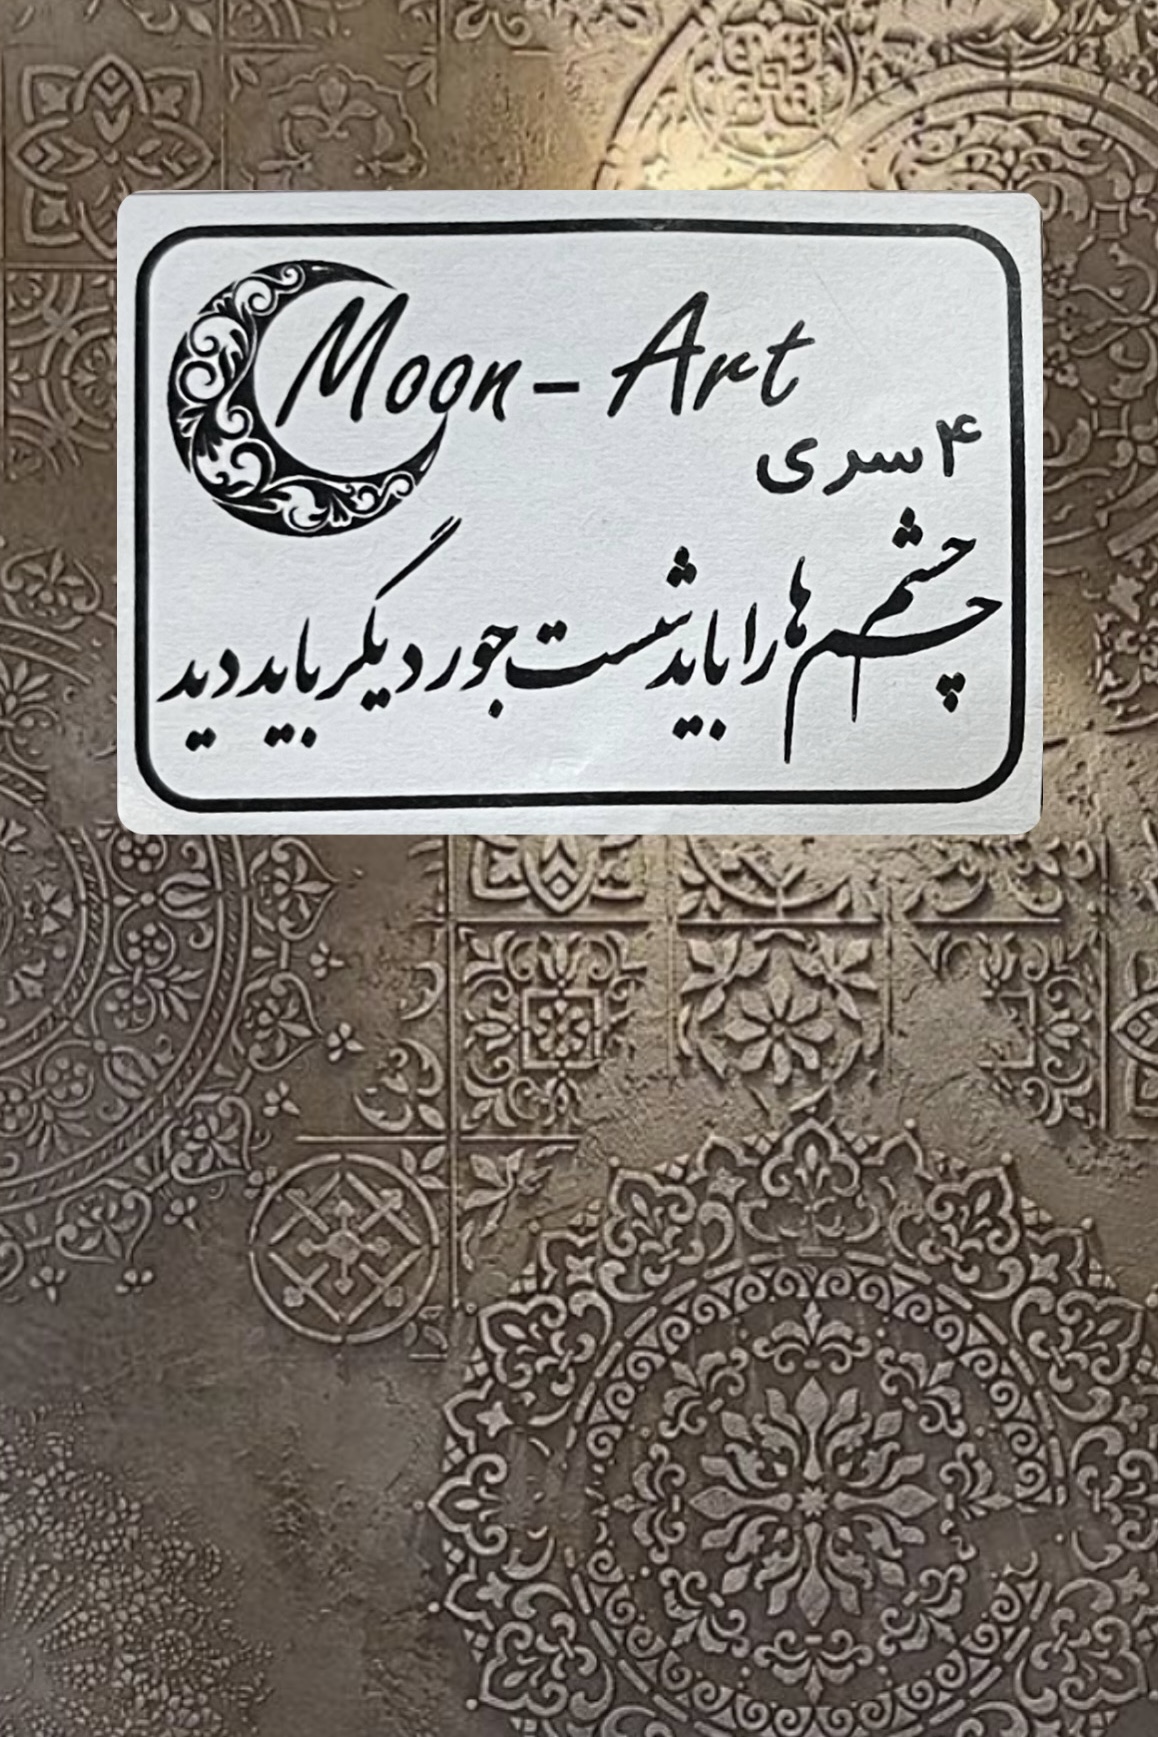 Moon - Art
۴ سری
چشم
چشم ها را باید شست جور دیگر باید دید